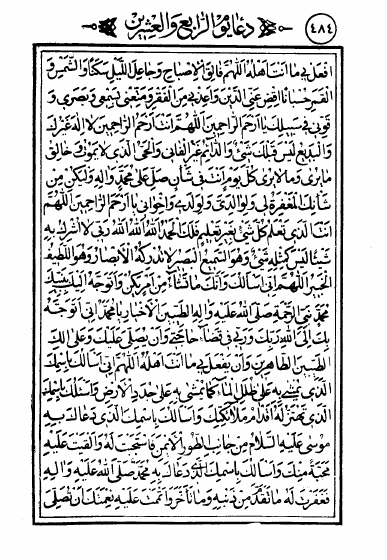 ٤٨٤ دعا يوم الرابع والعشرين
افعل بي ما انت اهله اللهم فالق الاصباح وجاعل الليل سكنا والشمس و
القمر حسبانا اقض عني الدين واعذني من الفقر ومتعني بسمعي وبصري و
قوني في سبيلك يا ارحم الراحمين اللهم انت ارحم الراحمين لا اله غيرك
والبديع ليس قبلك شيء والدايم غير الفاني والحي الذي لا يموت خالق
ما يرى وما لا يرى كل يوم انت في شان صل على محمد واله وليكن من
شانك المغفرة لي ولوالدي ولولدي واخواني يا ارحم الراحمين اللهم
انت الذي تعلم كل شيء بغير تعليم فلك الحمد الله الله الله ربي لا اشرك به
شيئا ليس كمثله شيء وهو السميع البصير لا تدركه الابصار وهو اللطيف
الخبير اللهم اني اسالك وانك ما تشاء من امر يكن واتوجه اليك بنبيك
محمد نبي الرحمة صلى الله عليه واله الطيبين الاخيار يا محمد اني اتوجه
بك الى الله ربك وربي في قضاء حاجتي وان يصلي عليك وعلى الك
الطيبين الطاهرين وان يفعل بي ما انت اهله اللهم اني اسالك باسمك
الذي يمشى به على طلل الماء كما تمشي به على جدد الارض واسئلك باسمك
الذي تهتز له اقدام ملائكتك واسالك باسمك الذي دعاك به
موسى عليه السلام من جانب الطور الايمن فاستجبت له والقيت عليه
محبة منك واسالك باسمك الذي دعاك به محمد صلى الله عليه واله
فغفرت له ما تقدم من ذنبه وما تاخر واتممت عليه نعمتك ان تصلي